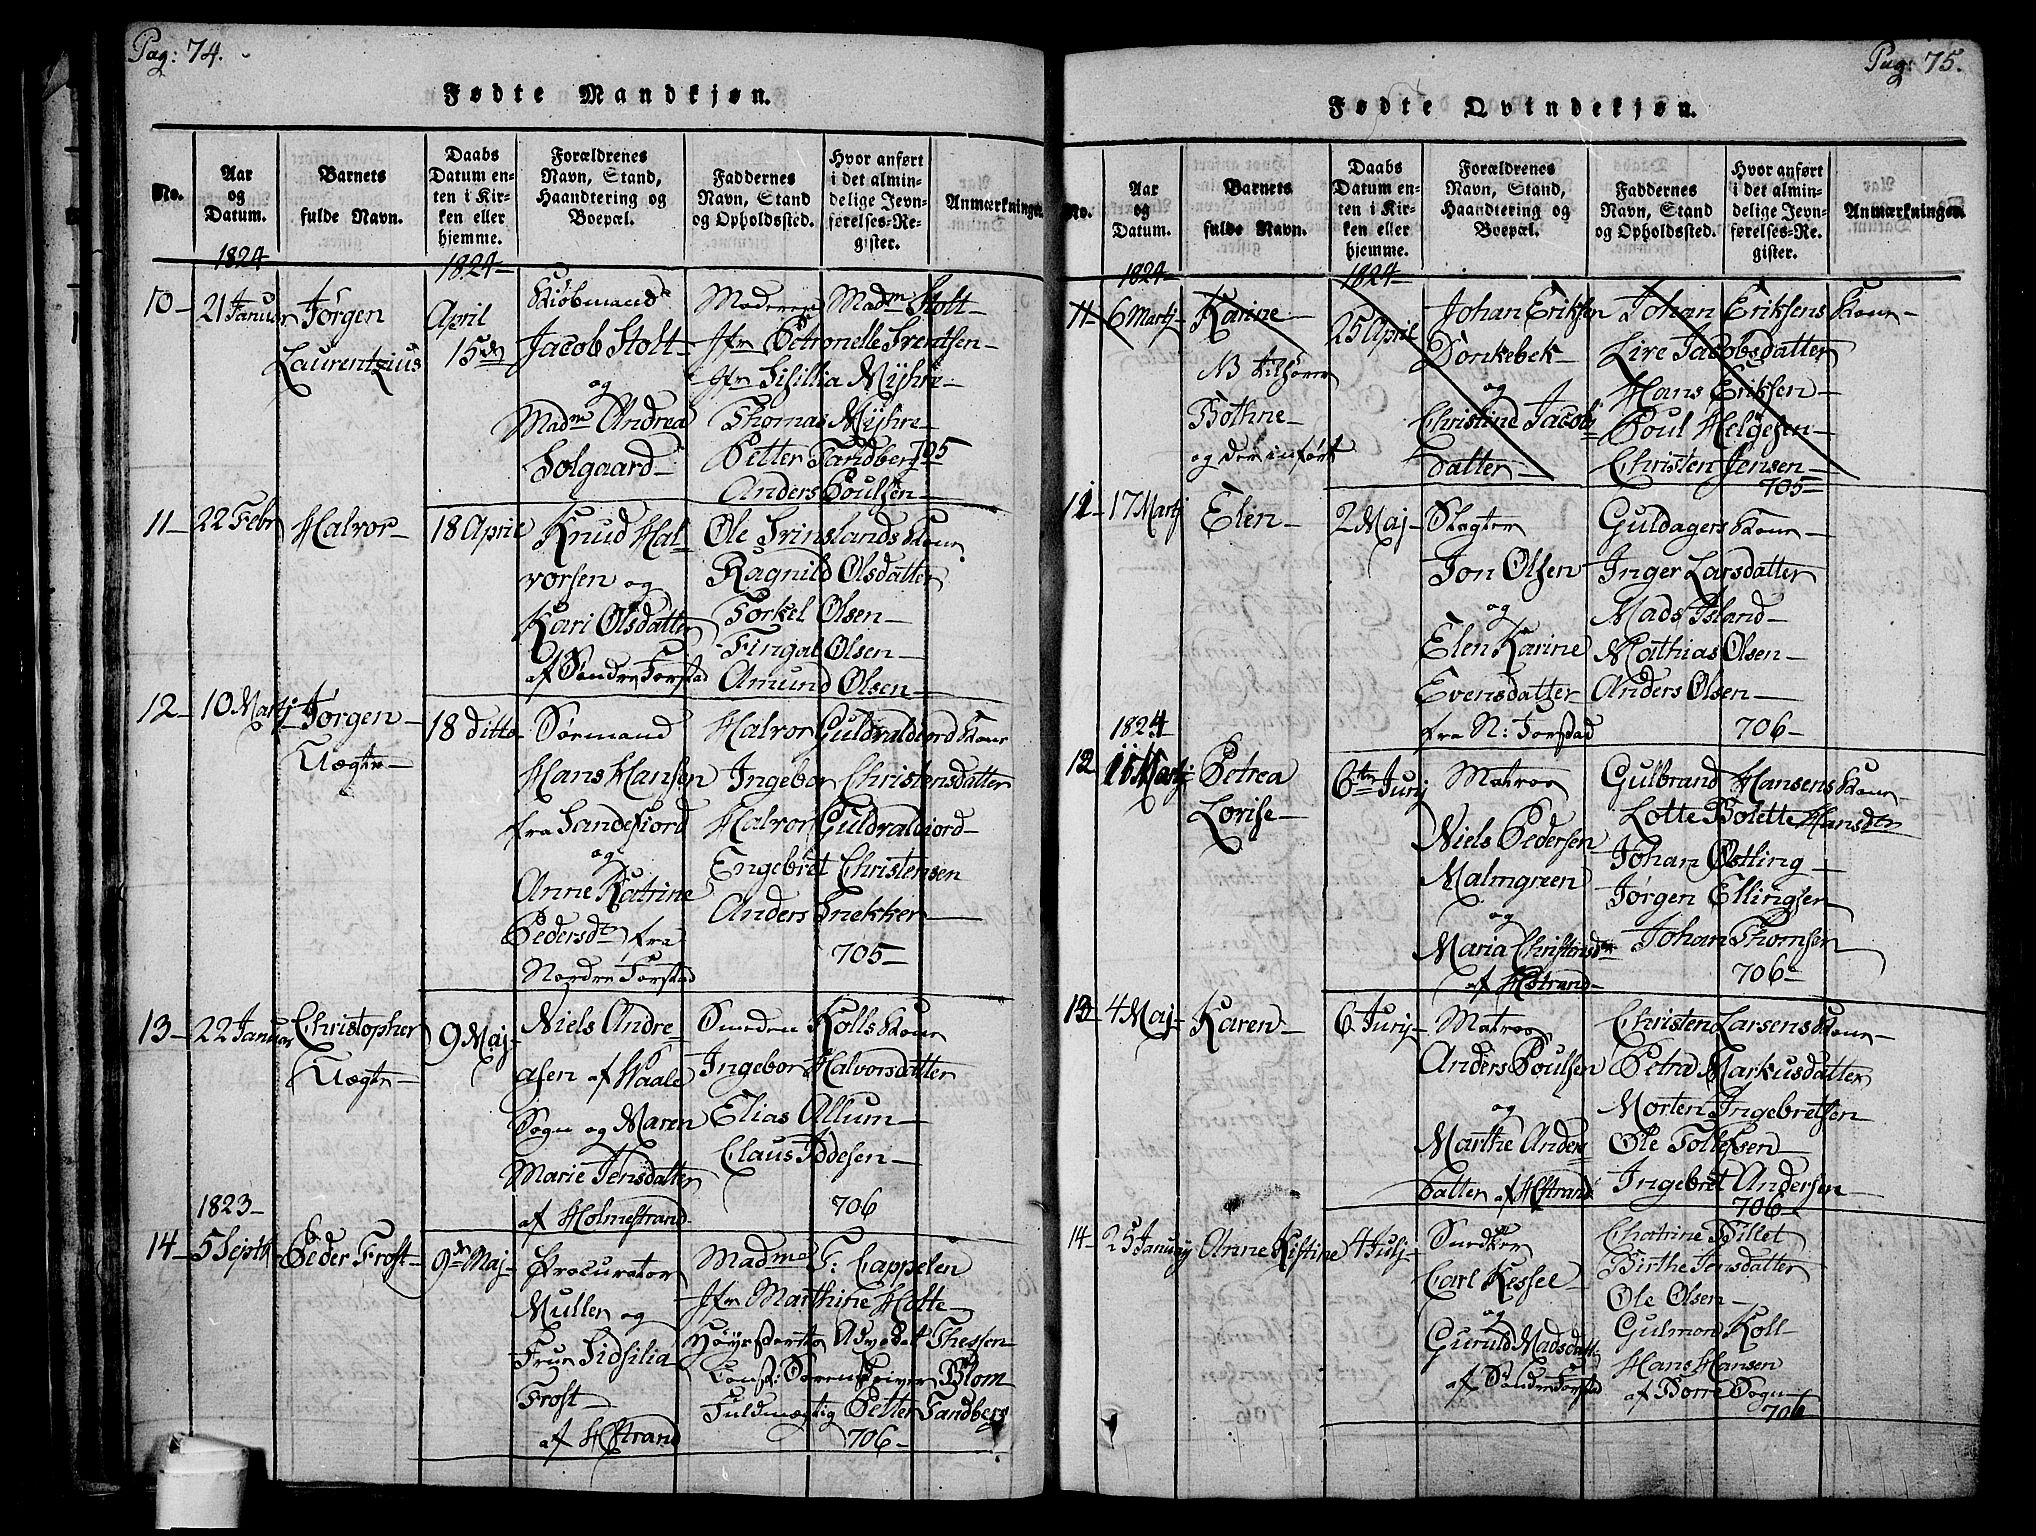 Pag: 74.
Fødte Mandkjøn.
No.
Aar
og
Datum.
Barnets
fulde Navn.
Daabs
Datum en-
ten i Kir-
ken eller
hjemme.
Forældrenes
Navn, Stand,
Haandtering og
Boepæl.
Faddernes
Navn, Stand
og Opholdssted.
Hvor anført
i det almin-
delige Jevn-
førelses-Re-
gister.
Anmærkninger.
1824
1824-
10- 21 Januar
Jørgen
Laurentzius
April
15de
Kiøbmand
Jacob Stolt-
og
Madme Andrea
Solgaard-
Madm Stolt-
Jfr Petronelle Svendsen-
Jfr Sisillia Myhre-
Thomas Myhre-
Petter Sandberg 705
Anders Poulsen-
11- 22 Febr
Halvor-
18 April
Knud Hal-
vorsen og
Kari Olsdatter
af Søndre Forstad
Ole Kone
Ragnild Olsdatter
Torkel Olsen-
Fingal Olsen-
Amund Olsen-
12- 10 Martj
Jørgen-
Uægte-
18 ditto-
Sørmand
Hans Hansen
fra Sandefiord
og
Anne Katrine
Pedersdtr fra
Nordre Forstad
Halvor Kone
Ingebor Christensdatter
Halvor
Engebret Christensen
Anders Snekker-
705-
13- 22 Januar
Christopher
Uægte-
9 Maj-
Niels Andre-
asen af Vaale
Sogn og Maren
Marie Jensdatter
af Holmestrand
Smeden Kolls Kone
Ingebor Halvorsdatter
Elias Allum-
Claus
706
1823-
14- 5 Septb
Peder Frost-
9de Maj-
Procurator
Muller og
Frue Sidsilia
Frost-
af HStrand
Madme F: Cappelen
Jfr Marthine Holte-
Advocat
Const: Sorenskriver Blom
Fuldmægtig Petter Sandberg
706-
Pag: 75.
Fødte Qvindekjøn.
No.
Aar
og
Datum.
Barnets
fulde Navn.
Daabs
Datum en-
ten i Kir-
ken eller
hjemme.
Forældrenes
Navn, Stand,
Haandtering og
Boepæl.
Faddernes
Navn, Stand
og Opholdssted.
Hvor anført
i det almin-
delige Jevn-
førelses-Re-
gister.
Anmærkninger.
1824
1824-
11- 6 Martj-
Karine-
NB tilhører
Bothne-
og der inført
25 April
Johan Eriksen
Donkebek-
og
Christine Jacobs
datter-
Johan Eriksens Kone-
Lire Jacobsdatter
Hans Eriksen-
Poul Helgesen-
Christen Jensen-
705-
11- 17 Martj
Elen-
2 Maj-
Slagter
Jon Olsen
og
Elen Karine
Evensdatter
fra N: Forstad
Guldagers Kone-
Inger Larsdatter
Mads Island-
Mathias Olsen-
Anders Olsen-
706-
1824
12 11 Martj-
Petrea
Lovise-
6te Junj
Matros
Niels Pedersen
Malmgreen
og
Maria Christensdtr
af HStrand-
Gulbrand Hansens Kone-
Lotte Bolette Hansdtr
Johan Østling-
Jørgen Ellingsen
Johan Thomsen
706-
13- 4 Maj-
Karen-
6 Junj-
Matros
Anders Poulsen
og
Marthe Anders
datter af HStrand
Christen Larsens Kone-
Petra Markusdatter
Morten Ingebretsen
Ole Tollefsen-
Ingebret Andersen
706-
14- 25 January
Anne Kistine
4 Julj-
Snedker
Carl Kessel
og
Gunild Madsdatter
af Søndre Forstad
Chatrine Billet
Birthe Jensdatter
Ole Olsen-
Gulmon Koll-
Hans Hansen
af Borre Sogn-
706